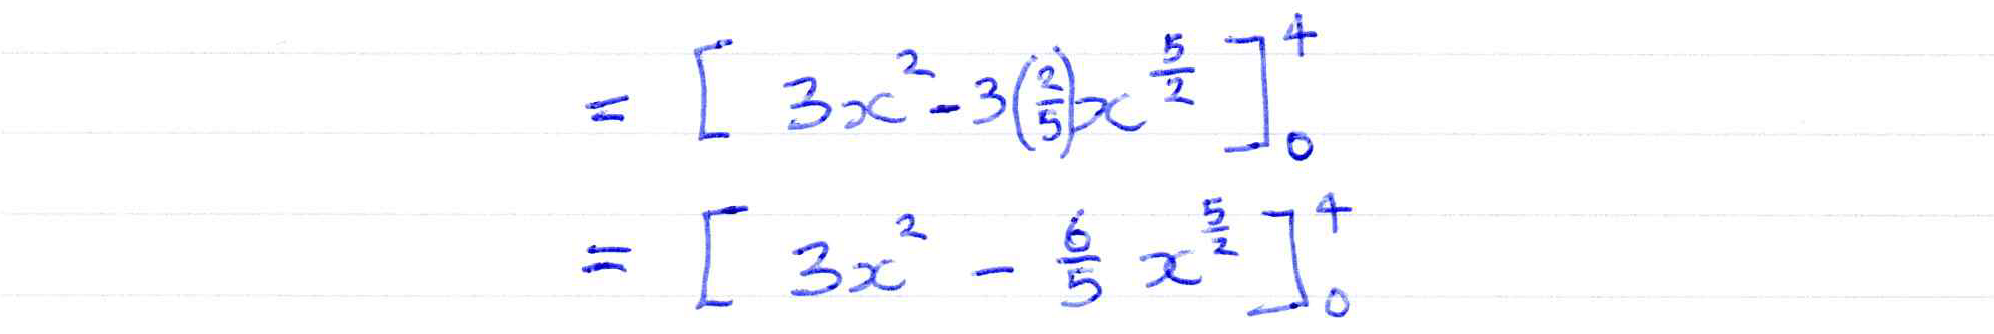 = [ 3x² - 3(2/5)x^(5/2) ]₀⁴
= [ 3x² - 6/5 x^(5/2) ]₀⁴